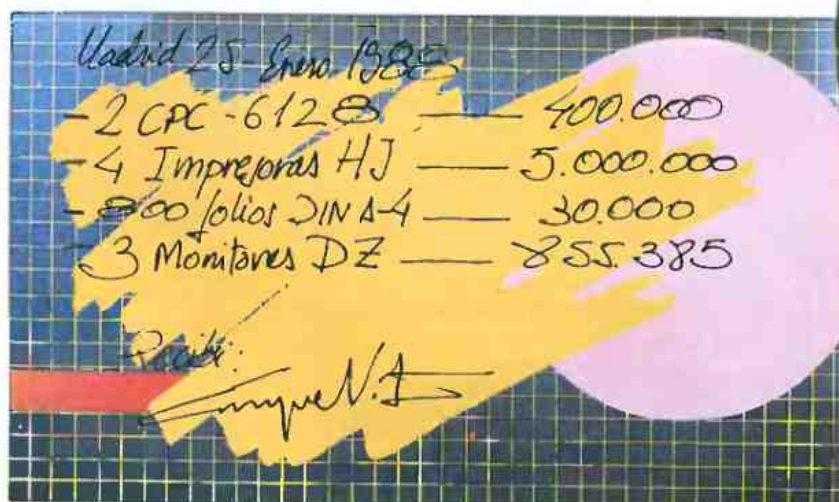 Madrid 25-Enero 1988
- 2 CPC - 6128 — 400.000
- 4 Impresoras HJ — 5.000.000
- 800 folios DIN A-4 — 30.000
- 3 Monitores DZ — 855.385
Recibí:
Enrique V. A